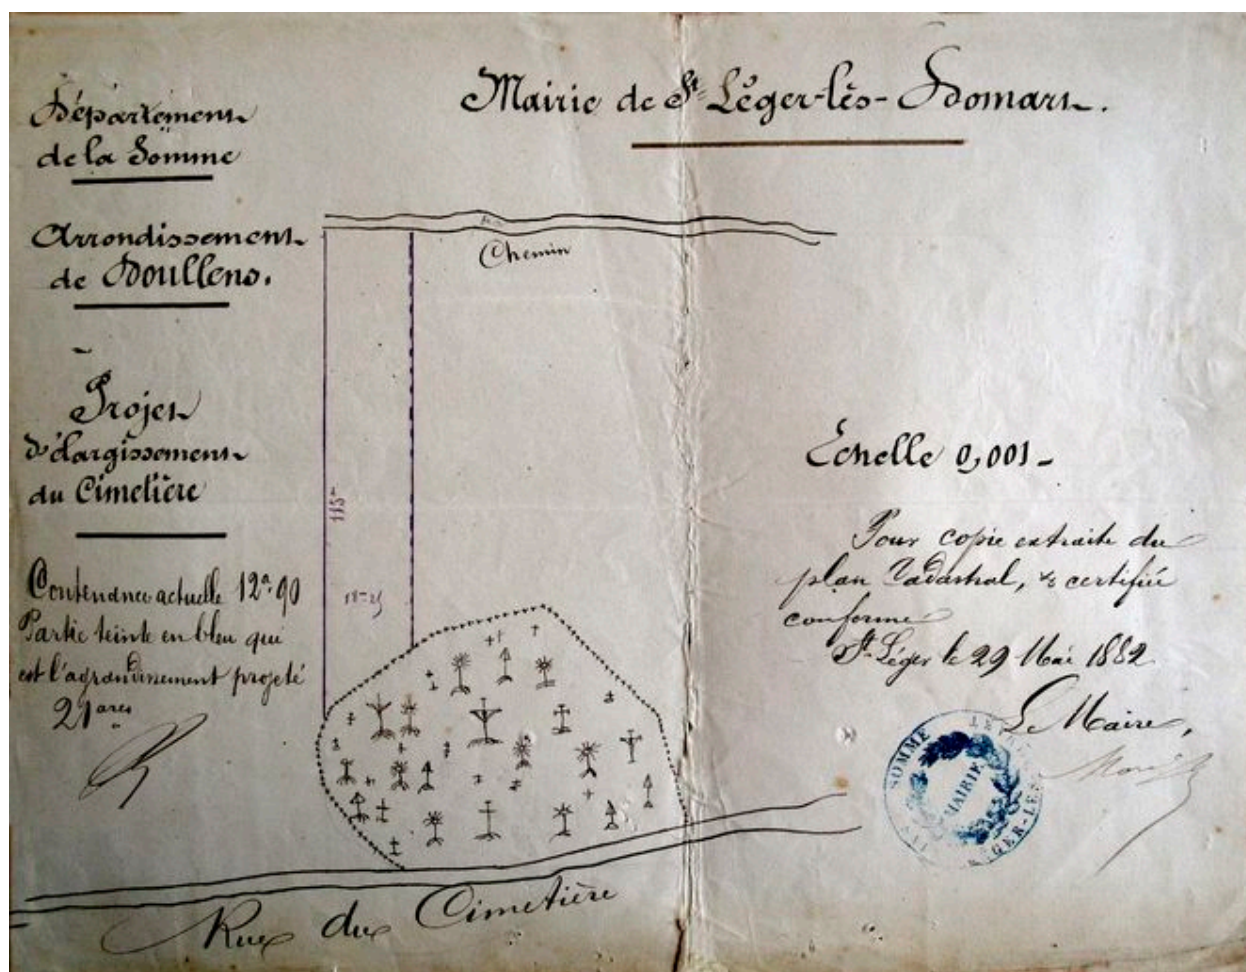 Mairie de St Léger-lès-Domart.
Département
de la Somme
Arrondissement
de Doullens.
Projet
d'élargissement
du Cimetière
Contenance actuelle 12a.90
Partie teinte en bleu qui
est l'agrandissement projeté
21 ares
Chemin
115m
18m25
Echelle 0,001
Pour copie extraite du
plan Cadastral, & certifiée
conforme
St Léger le 29 Mai 1882
Le Maire,
SOMME
MAIRIE
LÉGER-LES
Rue du Cimetière